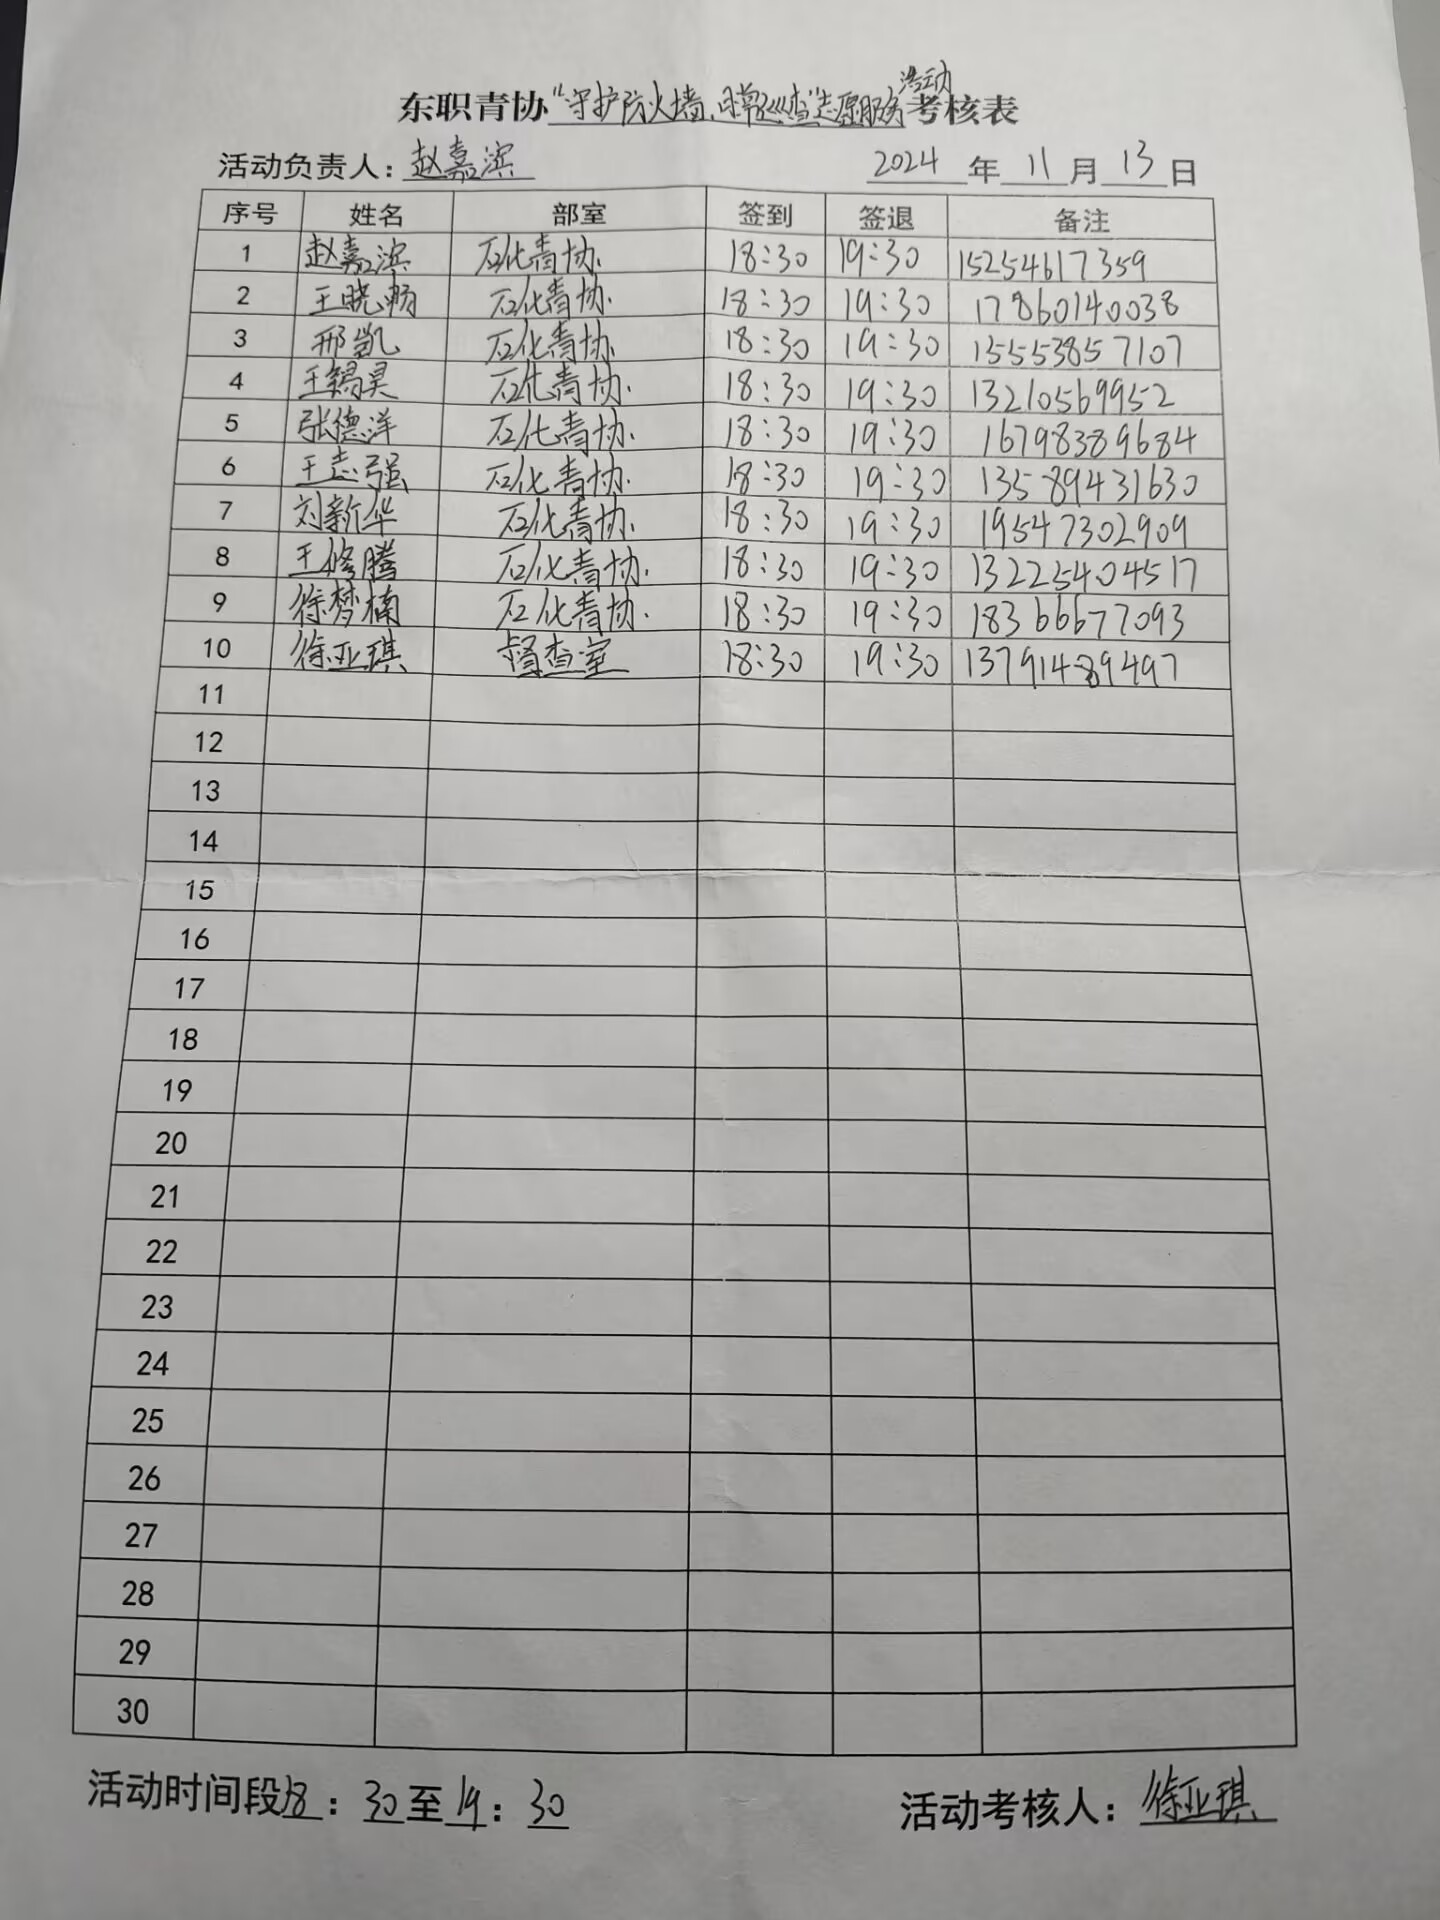 活动
东职青协“守护防火墙,日常巡查”志愿服务考核表
活动负责人：赵嘉滨 2024年11月13日
序号 姓名 部室 签到 签退 备注
1 赵嘉滨 石化青协 18:30 19:30 15254617359
2 王晓畅 石化青协. 18:30 19:30 17860140038
3 邢凯 石化青协. 18:30 19:30 15553857107
4 王锡昊 石化青协. 18:30 19:30 13210569952
5 张德洋 石化青协. 18:30 19:30 16798389684
6 王志强 石化青协. 18:30 19:30 13589431630
7 刘新华 石化青协. 18:30 19:30 19547302909
8 王修腾 石化青协. 18:30 19:30 13225404517
9 徐梦楠 石化青协. 18:30 19:30 18366677093
10 徐亚琪 督查室 18:30 19:30 13791489497
11
12
13
14
15
16
17
18
19
20
21
22
23
24
25
26
27
28
29
30
活动时间段18：30至19：30 活动考核人：徐亚琪